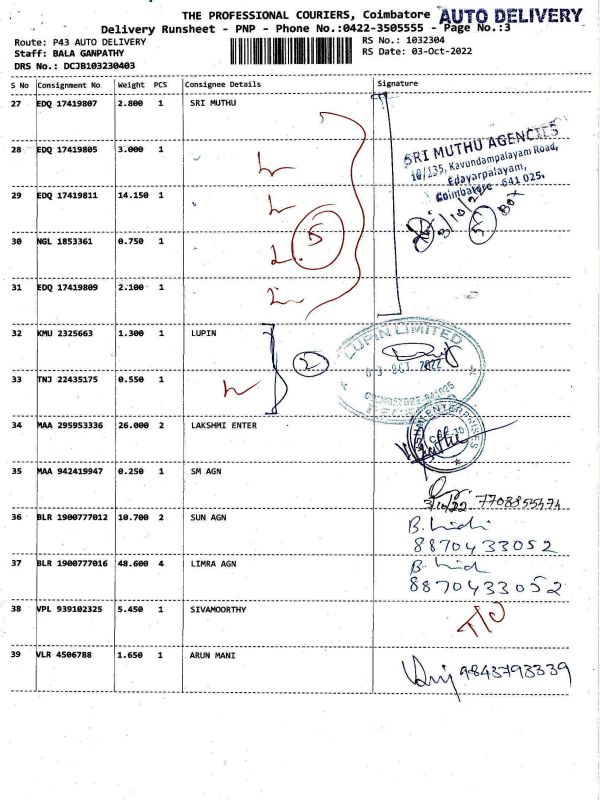 THE PROFESSIONAL COURIERS, Coimbatore AUTO DELIVERY
Delivery Runsheet - PNP - Phone No.:0422-3505555 - Page No.:3
Route: P43 AUTO DELIVERY RS No.: 1032304
Staff: BALA GANPATHY RS Date: 03-Oct-2022
DRS No.: DCJB103230403
S No Consignment No Weight PCS Consignee Details Signature
27 EDQ 17419807 2.800 1 SRI MUTHU
28 EDQ 17419805 3.000 1
SRI MUTHU AGENCIES
10/135, Kavundampalayam Road,
Edayarpalayam,
Coimbatore - 641 025.
29 EDQ 17419811 14.150 1
3/10/22
5 BOX
5
30 NGL 1853361 0.750 1
31 EDQ 17419809 2.100 1
32 KMU 2325663 1.300 1 LUPIN
2
LUPIN LIMITED
03 OCT 2022
33 TNJ 22435175 0.550 1
34 MAA 295953336 26.000 2 LAKSHMI ENTER
35 MAA 942419947 0.250 1 SM AGN
3/10/22 7708855474
36 BLR 1900777012 10.700 2 SUN AGN
8870433052
37 BLR 1900777016 48.600 4 LIMRA AGN
8870433052
38 VPL 939102325 5.450 1 SIVAMOORTHY
39 VLR 4506788 1.650 1 ARUN MANI
9843793339